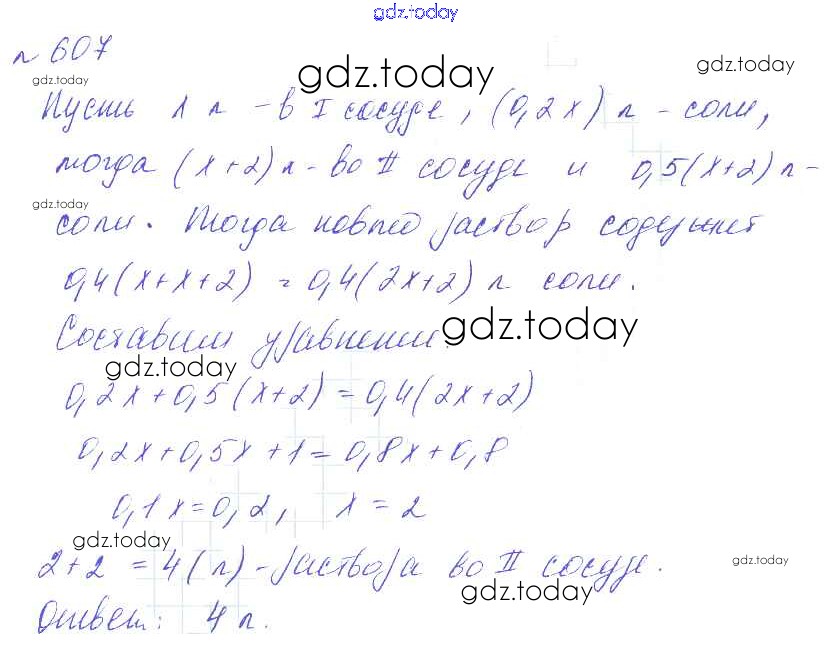 gdz.today
№ 607
gdz.today gdz.today gdz.today
Пусть x л - в I сосуде, (0,2x) л - соли,
тогда (x+2) л - во II сосуде и 0,5(x+2) л -
gdz.today
соли. Тогда новый раствор содержит
0,4(x+x+2) = 0,4(2x+2) л соли.
Составим уравнение: gdz.today
gdz.today
0,2x+0,5(x+2)=0,4(2x+2)
0,2x+0,5x+1=0,8x+0,8
0,1x=0,2, x=2
gdz.today
2+2=4(л)-раствора во II сосуде.
gdz.today gdz.today
Ответ: 4 л.